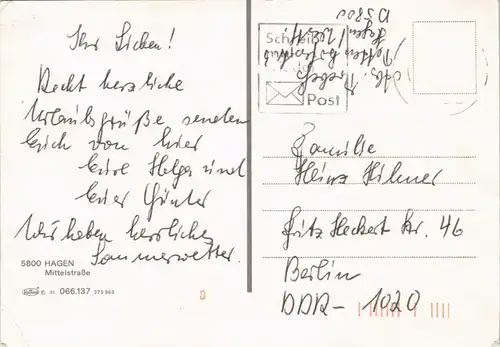 Ihr Lieben!
Recht herzliche
Urlaubsgrüße senden
Euch von hier
Eure Helga und
Euer Günter
Wir haben herrliches
Sommerwetter.
5800 HAGEN
Mittelstraße
066.137
8
Post
D 5800
Hagen 1
Familie
Heinz Hilmer
Fritz Heckert Str. 46
Berlin
DDR - 1020